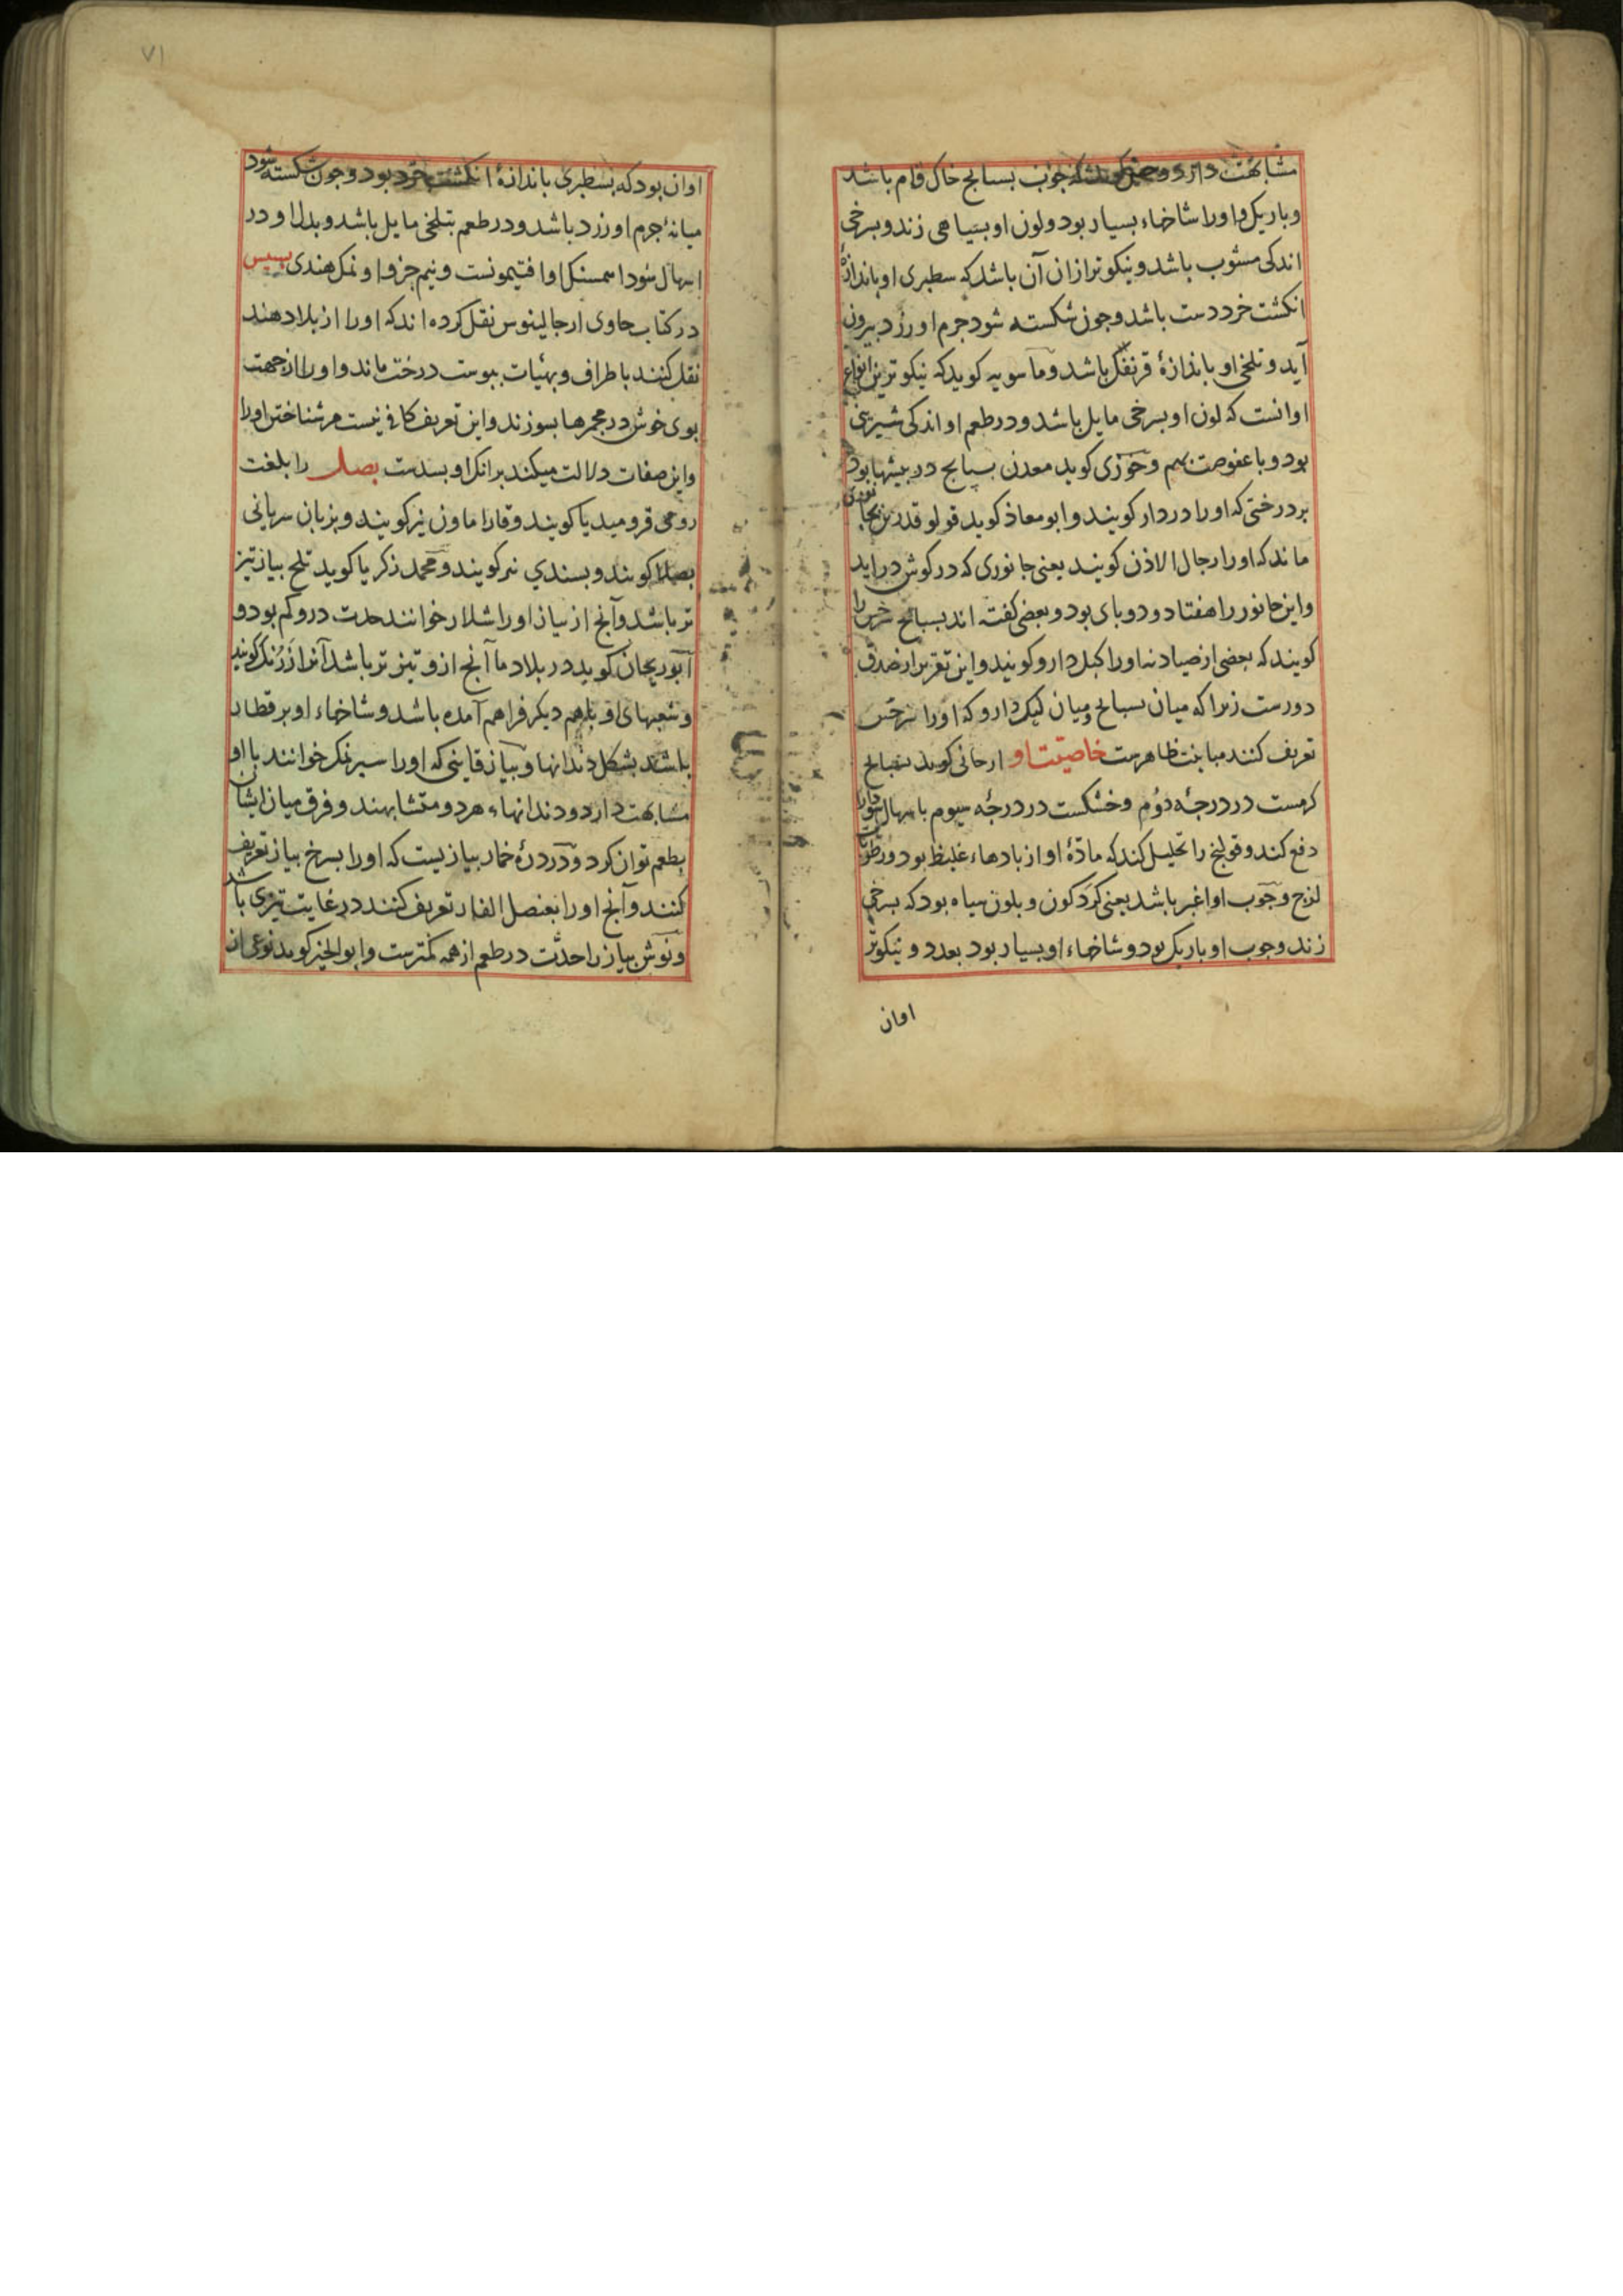 مشابهت دارد و جوب بسبایج خاک فام باشد
و باریک و اورا شاخهاء بسیار بود و لون او بسیاهی زند و بسرخی
اندکی مشوب باشد و نیکوتر ازان آن باشد که سطبری او باندازهٔ
انکشت خرد دست باشد و جون شکسته شود جرم او زرد بیرون
آید و تلخی او باندازهٔ قرنفل باشد و ماسویه کوید که نیکوترین انواع
او انست که لون او بسرخی مایل باشد و در طعم او اندکی شیرینی
بود و با عفوصت بهم و خوزی کوید معدن بسبایج در بیشها بود
بر درختی که اورا دردار کویند و ابو معاذ کوید قولوقندریون بجانوری
ماند که اورا رجال الاذن کویند یعنی جانوری که در کوش دراید
و این جانور را هفتاد و دو بای بود و بعضی کفته اند بسبایج را
کویند که بعضی از صیادنه اورا کیل دارو کویند و این تقریر از صدق
دورست زیرا که میان بسبایج و میان کیل دارو که اورا سرخس
تعریف کنند مباینت ظاهرست خاصیت او ارجانی کوید بسبایج
کرمست در درجهٔ دوم و خشکست در درجهٔ سیوم باسهال سودا را
دفع کند و قولنج را تحلیل کند که مادهٔ او از بادهاء غلیظ بود و رطوبات
لزج و جوب او اغبر باشد یعنی کرد کون و بلون سیاه بود که بسرخی
زند و جوب او باریک بود و شاخهاء او بسیار بود بعدد و نیکوتر
اوان
۷۱
اوان بود که بسطبری باندازهٔ انکشت خرد بود و جون شکسته شود
میانهٔ جرم او زرد باشد و در طعم بتلخی مایل باشد و بدل او در
اسهال سودا همسنک او افتیمونست و نیم جزو او نمک هندی بسبس
در کتاب حاوی از جالینوس نقل کرده اند که اورا از بلاد هند
نقل کنند باطراف و بهیأت ببوست درخت ماند و اورا از جهت
بوی خوش در مجمرها بسوزند و این تعریف کافی نیست مر شناختن اورا
و این صفات دلالت میکند برانک او بسدست بصل را بلغت
رومی قرومیدیا کویند و قارا ماون نیز کویند و بزبان سریانی
بصلا کویند و بسندی کویند و محمد زکریا کوید تلخ بیاز تیز
تر باشد و آنج از بیاز اورا شلار خوانند حدت درو کم بود و
ابوریحان کوید در بلاد ما آنج ازو تیزتر باشد آنرا کویند
و شعبهای او باهم دیکر فراهم آمده باشد و شاخهاء او بر قطار
باشد بشکل دندانها و بیاز قاینی که اورا سیرنمک خوانند با او
مشابهت دارد و دندانهاء هر دو متشابهند و فرق میان ایشان
بطعم توان کرد و دردرهٔ خمار بیازیست که اورا بسرخ بیاز تعریف
کنند و آنج اورا بعنصل الفار تعریف کنند در غایت تیزی باشد
و نوش بیاز را حدّت در طعم از همه کمترست و ابوالخیر کوید نوعی از